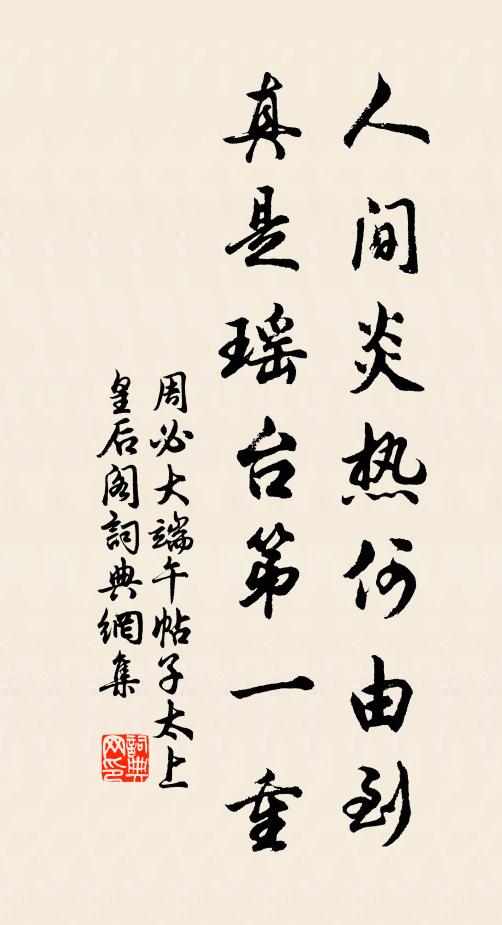 人间炎热何由到
真是瑶台第一重
周必大端午帖子太上
皇后阁詞典網集
詞典
网印